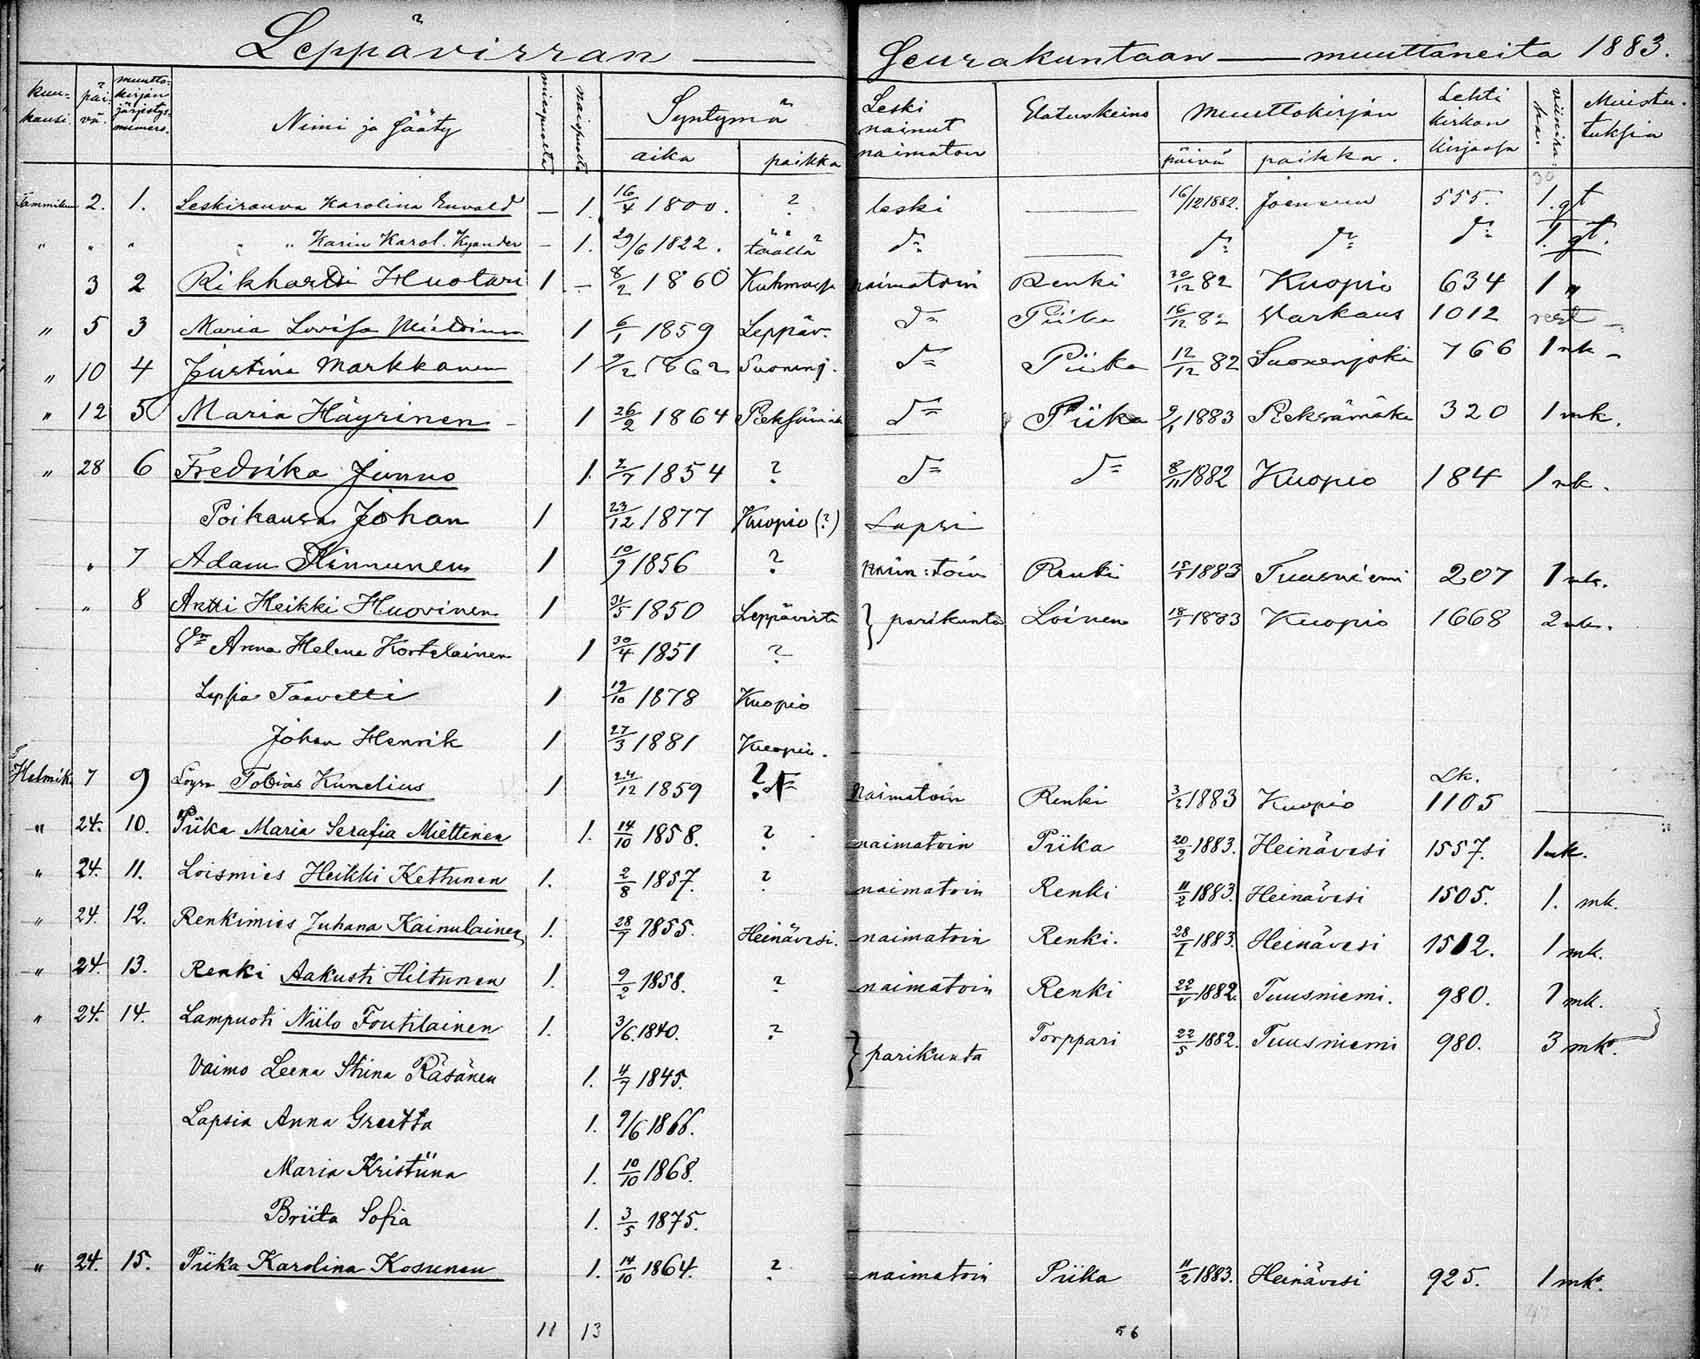 Leppävirran — Seurakuntaan — muuttaneita 1883.
kuu-kausi päi-vä. muutto-kirjan järjestys-numero. Nimi ja Sääty miespuolia naispuolia Syntymä aika paikka Leski nainut naimaton Elatuskeino Muuttokirjan päivä paikka. Lehti kirkon kirjassa Muistu-tuksia
Tammikuu 2. 1. Leskirouva Karolina Enwald — 1. 16/4 1800. ? leski — 16/12 1882. Joensuu 555. 1. gt
" " " " " Karin Karol. Kyander — 1. 29/6 1822. täällä d:o — d:o d:o d:o 1. gt.
3 2 Rikhardi Huotari 1 — 8/2 1860 Kuhmossa naimatoin Renki 30/12 82 Kuopio 634 1 "
" 5 3 Maria Lovisa Miettinen 1 6/1 1859 Leppäv. d:o Piika 16/12 82 Varkaus 1012 rest —
" 10 4 Justina Markkanen 1 9/2 1862 Suonenj. d:o Piika 12/12 82 Suonenjoki 766 1 mk —
" 12 5 Maria Häyrinen — 1 26/2 1864 Pieksämäk d:o Piika 9/1 1883 Pieksämäki 320 1 mk.
" 28 6 Fredrika Junno 1. 2/7 1854 ? d:o d:o 8/11 1882 Kuopio 184 1 mk.
Poikansa Johan 1 23/12 1877 Kuopio (?) Lapsi
" 7 Adam Kinnunen 1 10/9 1856 ? naim:toin Renki 15/1 1883 Tuusniemi 207 1 mk.
" 8 Antti Heikki Huovinen 1 31/5 1850 Leppävirta } parikunta Loinen 18/1 1883 Kuopio 1668 2 mk.
Anna Helena Kortelainen 1 30/4 1851 ?
Lapsia Taavetti 1 19/10 1878 Kuopio
Johan Henrik 1 27/3 1881 Kuopio.
Helmik 7 9 Tobias Kunelius 1 24/12 1859 ? naimatoin Renki 3/2 1883 Kuopio Lk. 1105 —
" 24. 10. Piika Maria Serafia Miettinen 1. 14/10 1858. ? naimatoin Piika 20/2 1883. Heinävesi 1557. 1 mk.
" 24. 11. Loismies Heikki Kettunen 1. 2/8 1857. ? naimatoin Renki 11/2 1883. Heinävesi 1505. 1. mk.
" 24. 12. Renkimies Juhana Kainulainen 1. 28/7 1855. Heinävesi. naimatoin Renki. 28/1 1883. Heinävesi 1512. 1 mk.
" 24. 13. Renki Aakusti Hiltunen 1. 9/2 1858. ? naimatoin Renki 22/V 1882. Tuusniemi. 980. 1 mk.
" 24. 14. Lampuoti Niilo Foutilainen 1. 3/6. 1840. ? } parikunta Torppari 22/5 1882. Tuusniemi 980. 3 mk.
Vaimo Leena Stiina Räsänen 1. 4/7 1845.
Lapsia Anna Greetta 1. 9/6 1866.
Maria Kristiina 1. 10/10 1868.
Briita Sofia 1. 3/5 1875.
" 24. 15. Piika Karolina Kosunen 1. 14/10 1864. ? naimatoin Piika 11/2 1883. Heinävesi 925. 1 mk.
11 13 56